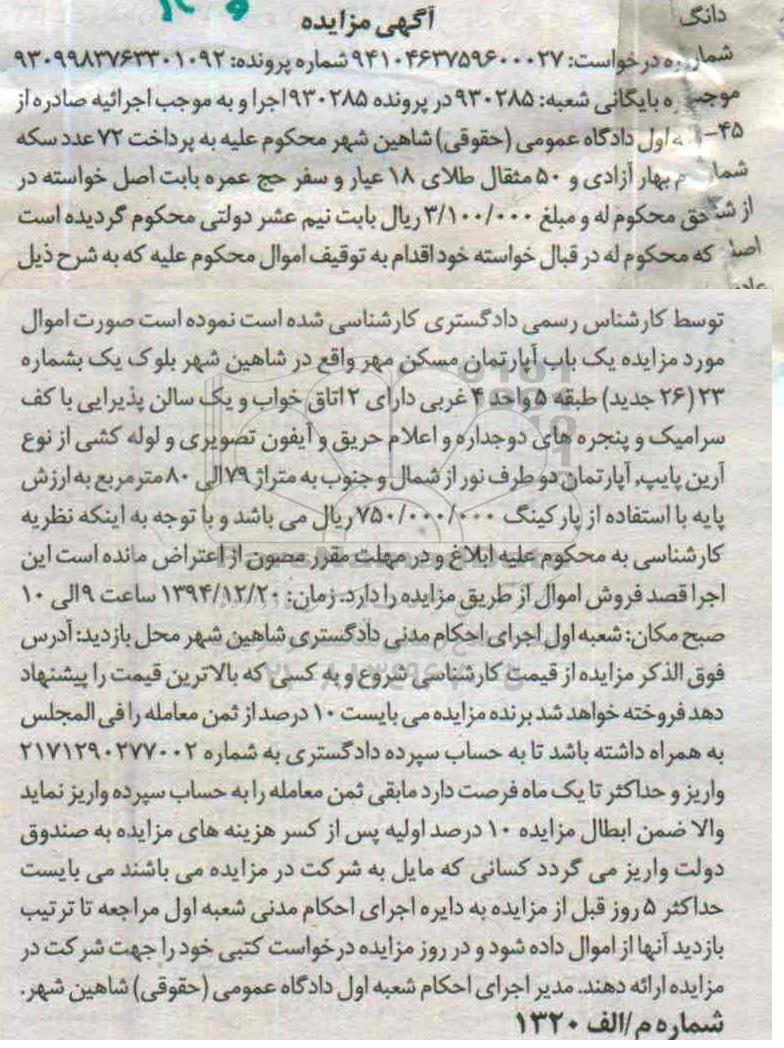 دانگ
آگهی مزایده
شماره درخواست: ۹۴۱۰۴۶۳۷۵۹۶۰۰۰۲۷ شماره پرونده: ۹۳۰۹۹۸۳۷۶۳۳۰۱۰۹۲
موجب ه بایگانی شعبه: ۹۳۰۲۸۵ در پرونده ۹۳۰۲۸۵ اجرا و به موجب اجرائیه صادره از
۴۵- ه اول دادگاه عمومی (حقوقی) شاهین شهر محکوم علیه به پرداخت ۷۲ عدد سکه
شما م بهار آزادی و ۵۰ مثقال طلای ۱۸ عیار و سفر حج عمره بابت اصل خواسته در
از ش حق محکوم له و مبلغ ۳/۱۰۰/۰۰۰ ریال بابت نیم عشر دولتی محکوم گردیده است
اصل که محکوم له در قبال خواسته خود اقدام به توقیف اموال محکوم علیه که به شرح ذیل
توسط کارشناس رسمی دادگستری کارشناسی شده است نموده است صورت اموال
مورد مزایده یک باب آپارتمان مسکن مهر واقع در شاهین شهر بلوک یک بشماره
۲۳ (۲۶ جدید) طبقه ۵ واحد ۴ غربی دارای ۲ اتاق خواب و یک سالن پذیرایی با کف
سرامیک و پنجره های دوجداره و اعلام حریق و آیفون تصویری و لوله کشی از نوع
آرین پایپ, آپارتمان دو طرف نور از شمال و جنوب به متراژ ۷۹ الی ۸۰ مترمربع به ارزش
پایه با استفاده از پارکینگ ۷۵۰/۰۰۰/۰۰۰ ریال می باشد و با توجه به اینکه نظریه
کارشناسی به محکوم علیه ابلاغ و در مهلت مقرر مصون از اعتراض مانده است این
اجرا قصد فروش اموال از طریق مزایده را دارد. زمان: ۱۳۹۴/۱۲/۲۰ ساعت ۹ الی ۱۰
صبح مکان: شعبه اول اجرای احکام مدنی دادگستری شاهین شهر محل بازدید: آدرس
فوق الذکر مزایده از قیمت کارشناسی شروع و به کسی که بالاترین قیمت را پیشنهاد
دهد فروخته خواهد شد برنده مزایده می بایست ۱۰ درصد از ثمن معامله را فی المجلس
به همراه داشته باشد تا به حساب سپرده دادگستری به شماره ۲۱۷۱۲۹۰۲۷۷۰۰۲
واریز و حداکثر تا یک ماه فرصت دارد مابقی ثمن معامله را به حساب سپرده واریز نماید
والا ضمن ابطال مزایده ۱۰ درصد اولیه پس از کسر هزینه های مزایده به صندوق
دولت واریز می گردد کسانی که مایل به شرکت در مزایده می باشند می بایست
حداکثر ۵ روز قبل از مزایده به دایره اجرای احکام مدنی شعبه اول مراجعه تا ترتیب
بازدید آنها از اموال داده شود و در روز مزایده درخواست کتبی خود را جهت شرکت در
مزایده ارائه دهند. مدیر اجرای احکام شعبه اول دادگاه عمومی (حقوقی) شاهین شهر.
شماره م/الف ۱۳۲۰